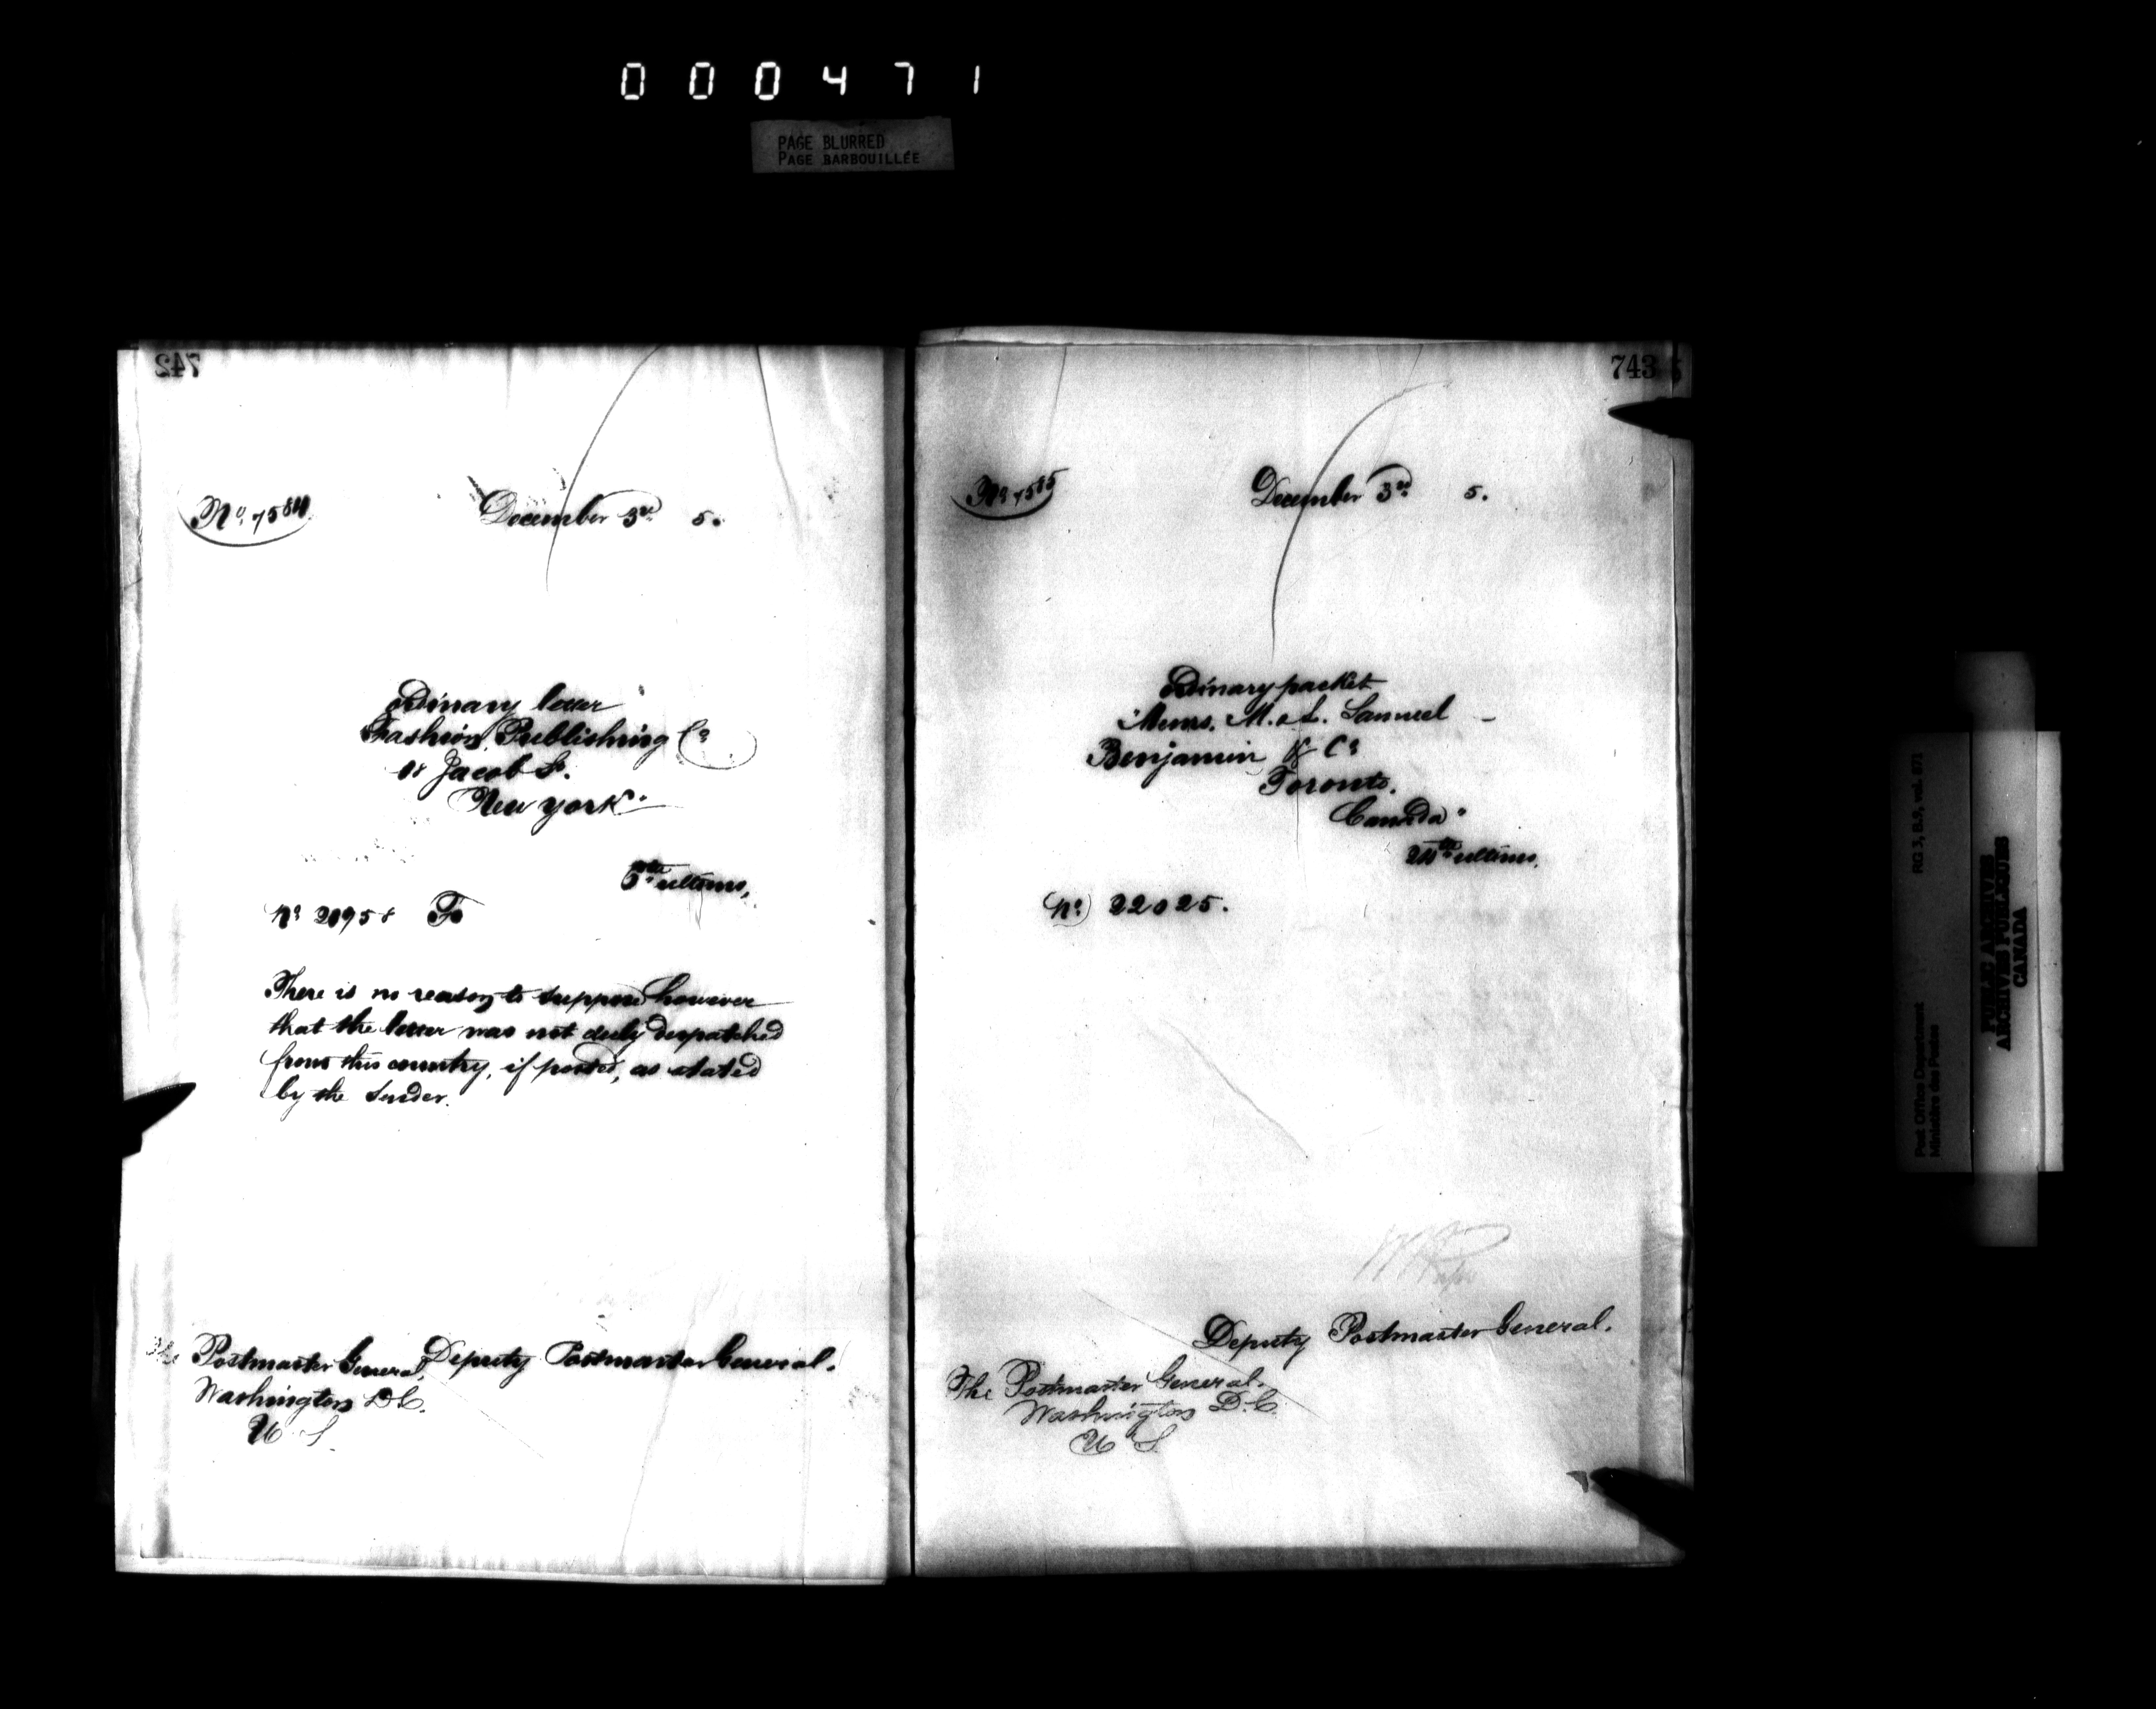 000471
PAGE BLURRED
PAGE BARBOUILLÉE
742
No. 7584
December 3rd 5.
Ordinary letter
Fashion Publishing Co
18 Jacob St.
New York.
5th ultimo,
No. 20958 To
There is no reason to suppose however
that the letter was not duly despatched
from this country, if posted, as stated
by the Sender.
Deputy Postmaster General.
The Postmaster General,
Washington D.C.
U S.
743
No. 7585
December 3rd 5.
Ordinary packet
"Messrs. M. & L. Samuel
Benjamin & Co
Toronto.
Canada"
24th ultimo.
No. 22025.
Deputy Postmaster General.
The Postmaster General.
Washington D.C.
U S
RG 3, B.9, vol. 871
Post Office Department
Ministère des Postes
PUBLIC ARCHIVES
ARCHIVES PUBLIQUES
CANADA